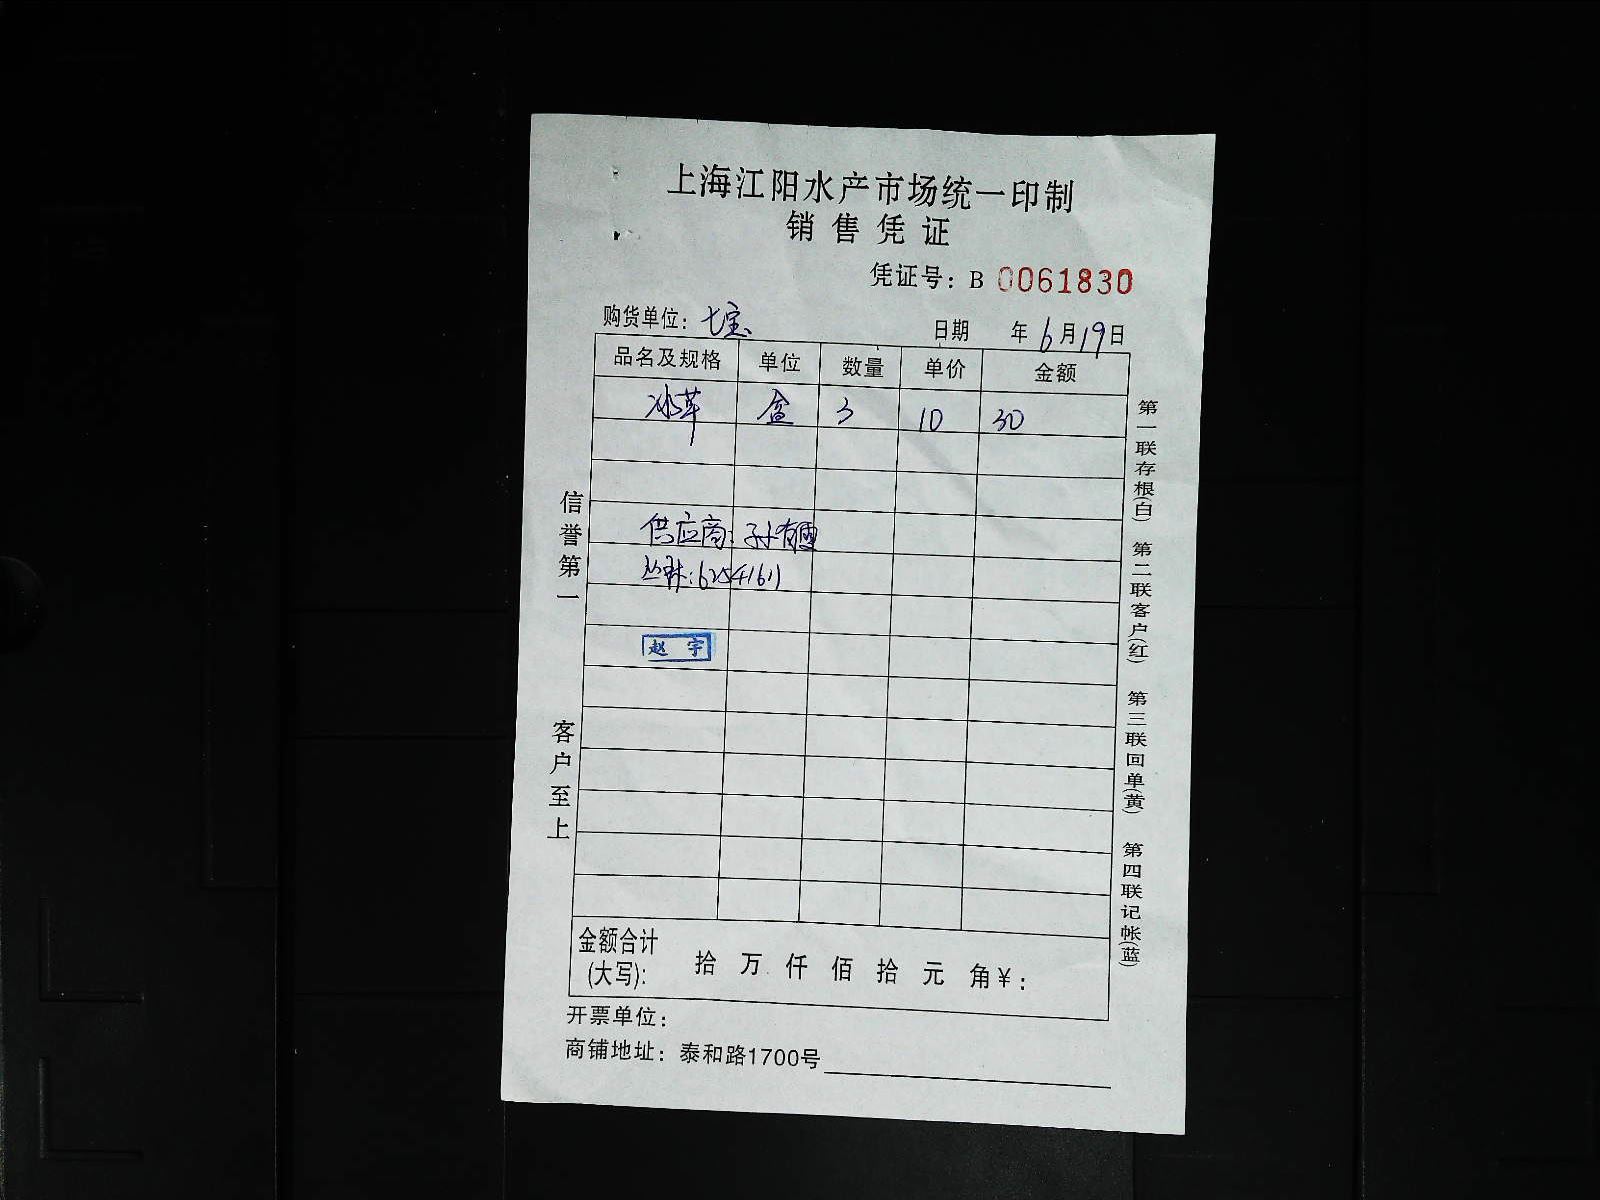 上海江阳水产市场统一印制
销售凭证
凭证号：B 0061830
购货单位：七宝 日期 年 6 月 19 日
品名及规格 单位 数量 单价 金额
冰草 盒 3 10 30
供应商：孙有
: 62541611
赵宇
金额合计(大写): 拾 万 仟 佰 拾 元 角 ¥：
开票单位：
商铺地址：泰和路1700号
信誉第一
客户至上
第一联存根(白) 第二联客户(红) 第三联回单(黄) 第四联记帐(蓝)